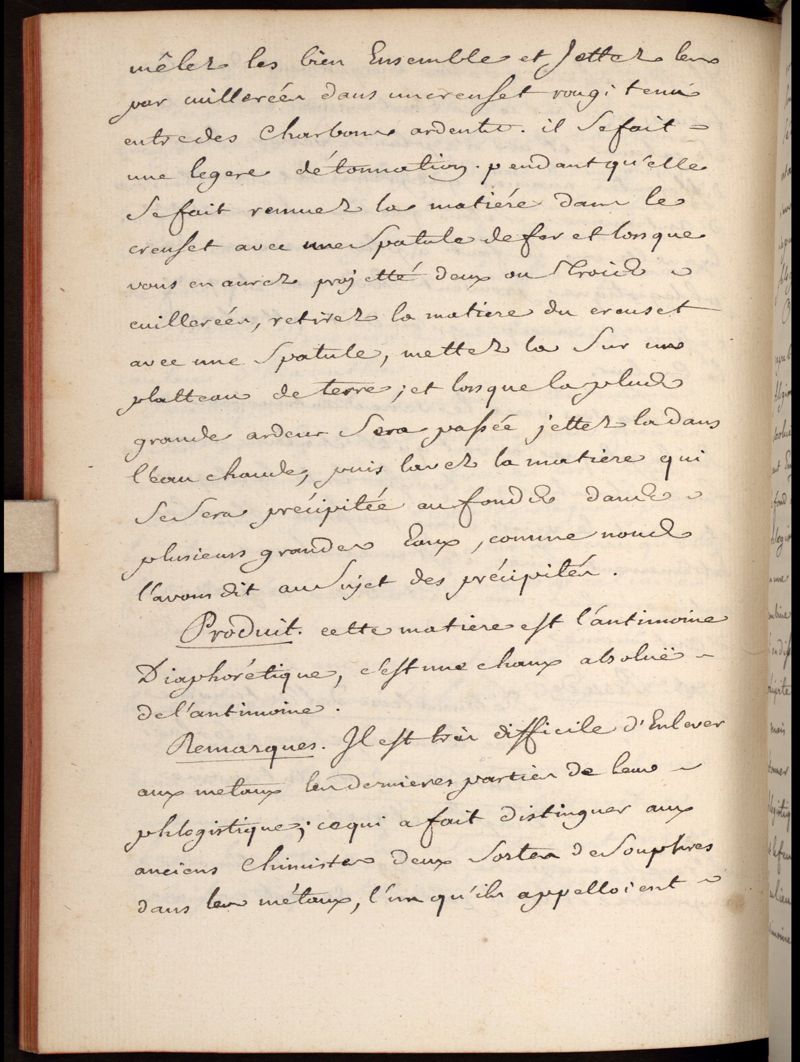 mêlez les bien Ensemble et Jettez les
par cuillerées dans un creuset rougi tenu
entre des Charbons ardents. il Se fait =
une legere détonnation. pendant qu'elle
Se fait remuez la matiére dans le
creuset avec une Spatule de fer et lorsque
vous en aurez projetté deux ou Trois ~
cuillerées, retirez la matiere du creuset
avec une Spatule, mettez la Sur un
platteau de terre; et lorsque la plus
grande ardeur Sera passée jettez la dans
l'eau chaude, puis lavez la matiere qui
Se Sera précipitée au fond dans ~
plusieurs grandes Eaux, comme nous
l'avons dit au Sujet des précipités.
Produit. cette matiere est l'antimoine
Diaphorétique, c'est une chaux absoluë ~
de l'antimoine.
Remarques. Il est très difficile d'Enlever
aux metaux les dernieres parties de leur ~
phlogistique; ce qui a fait distinguer aux
anciens Chimistes deux Sortes de Souphres
dans les métaux, l'un qu'ils appelloient ~